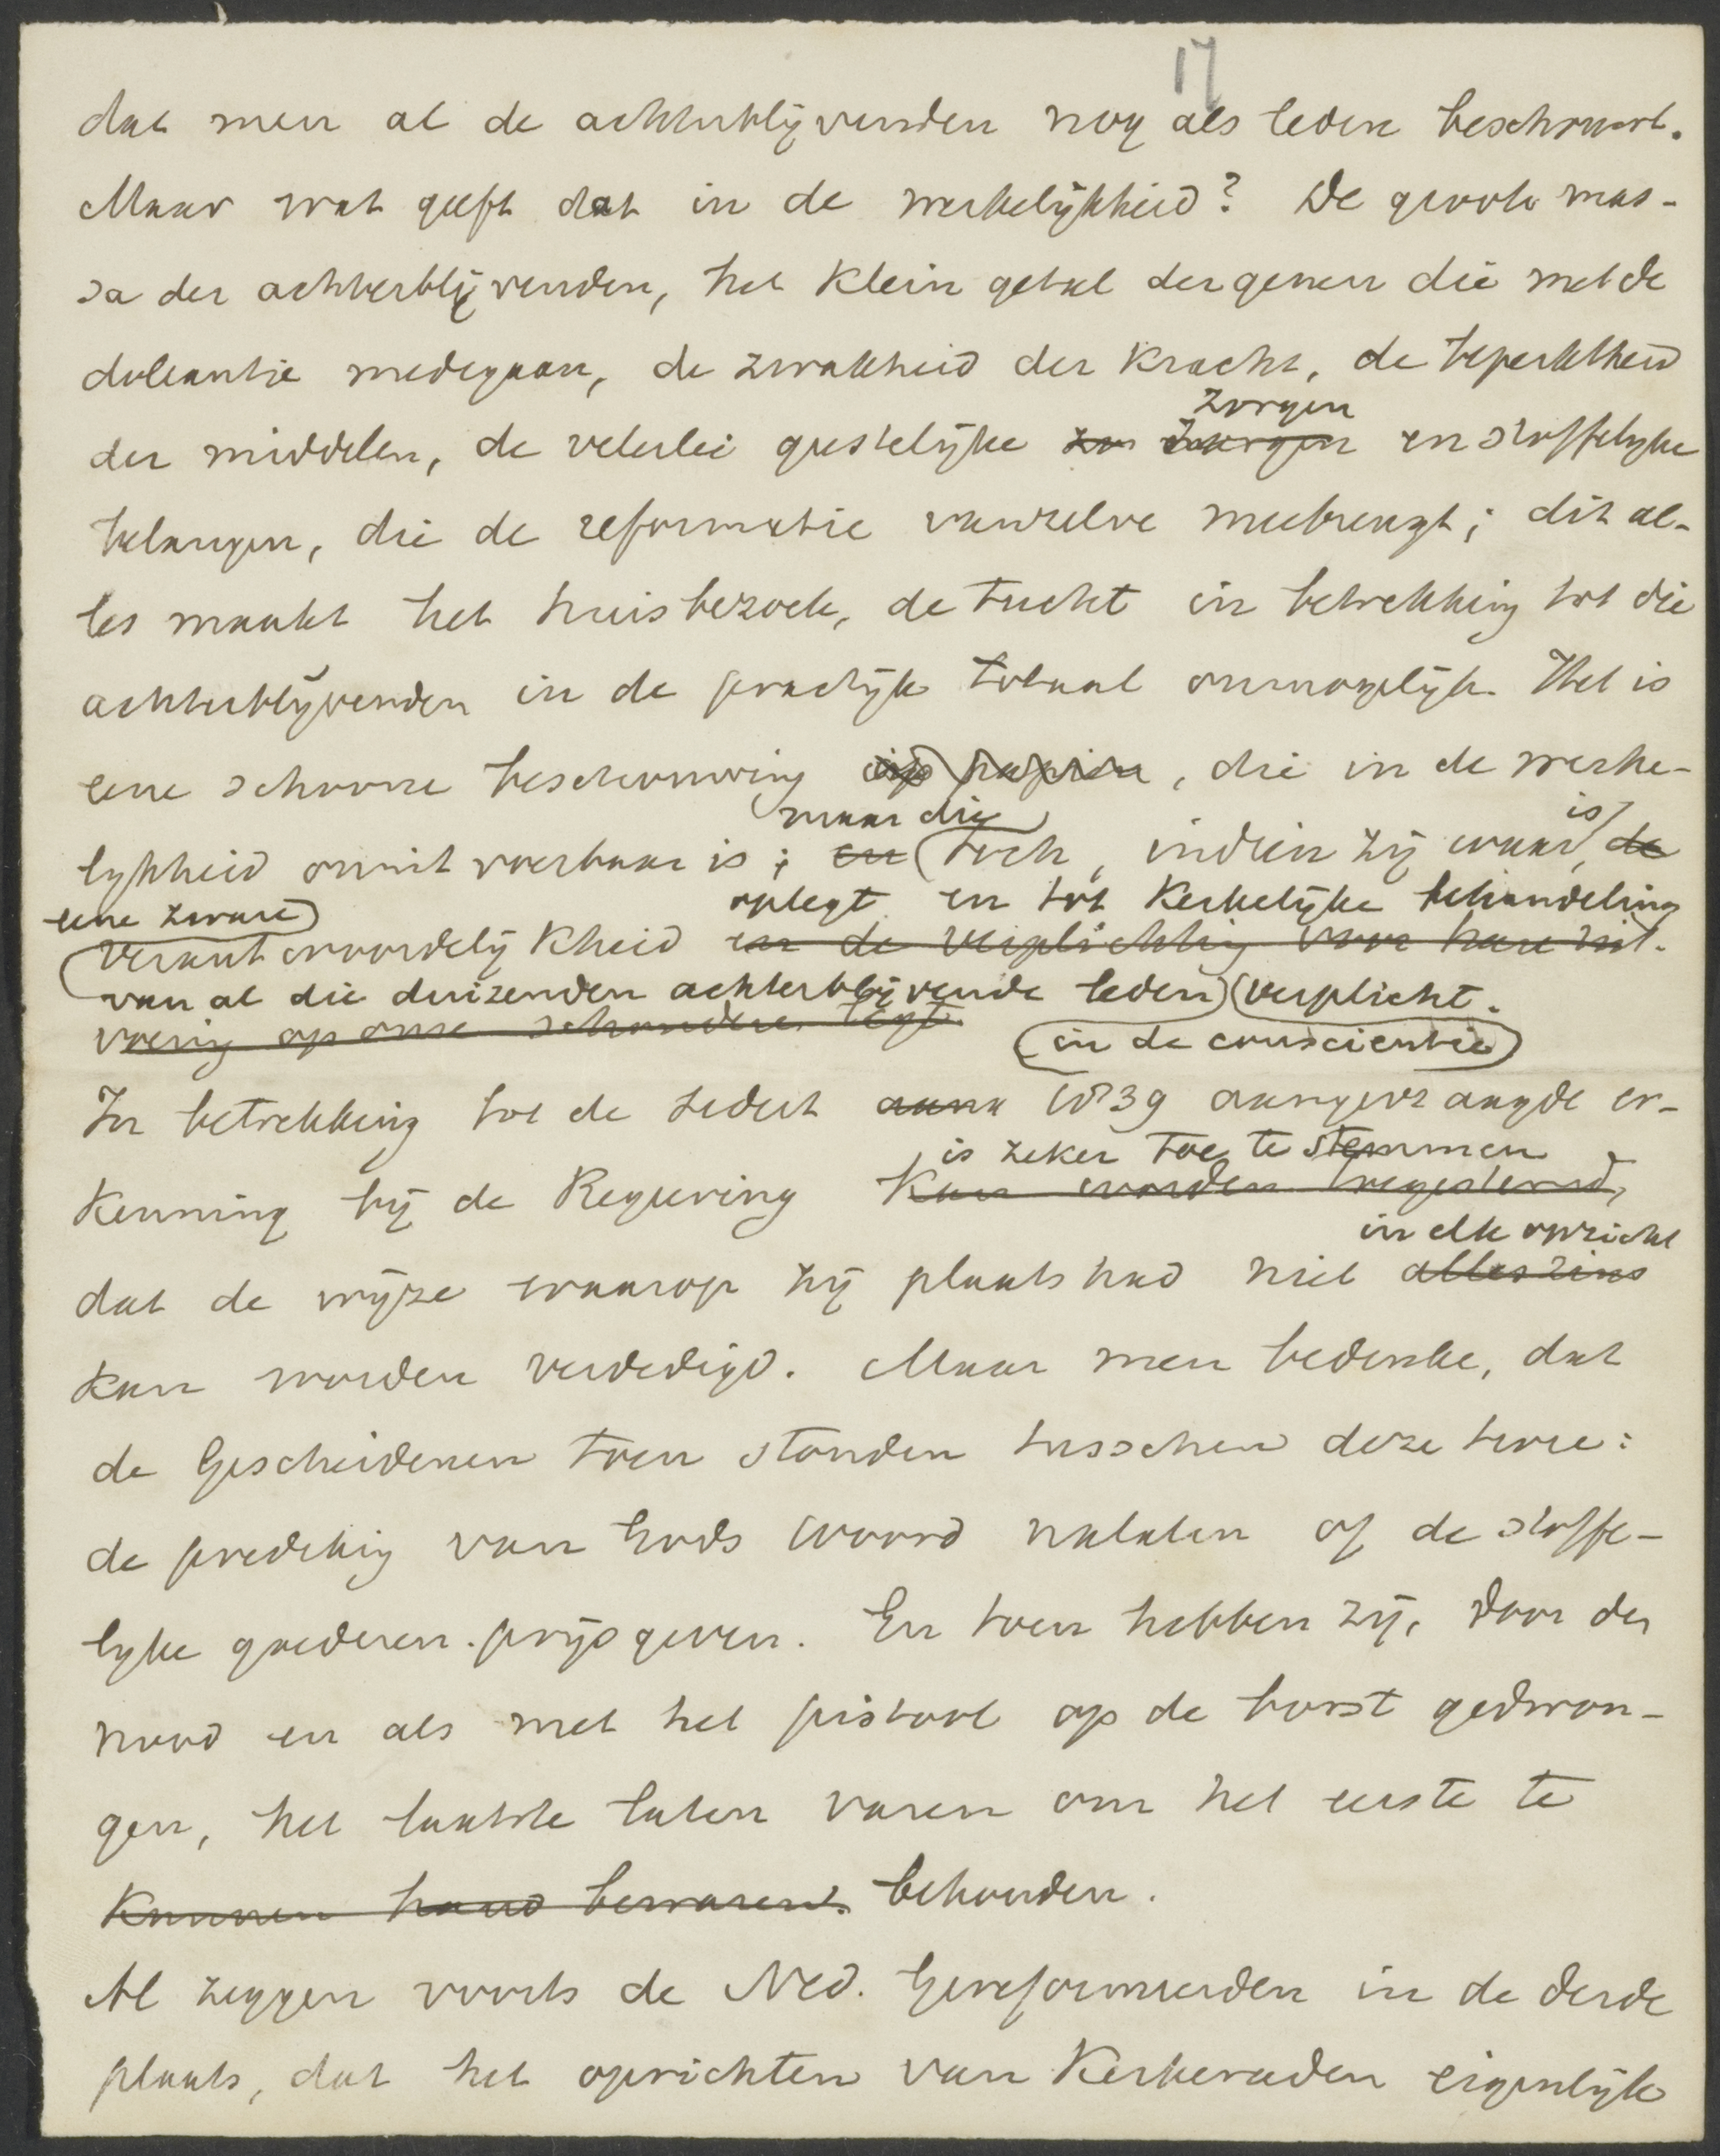 17
dat men al de achterblijvenden nog als leden beschouwt.
Maar wat geeft dat in de werkelijkheid? De groote mas-
sa der achterblijvenden, het klein getal dergenen die met de
doleantie medegaan, de zwakheid der kracht, de beperktheid
zorgen
der middelen, de velerlei geestelijke zo zorgen en stoffelijke
belangen, die de reformatie vanzelve meebrengt; dit al-
les maakt het huisbezoek, de tucht in betrekking tot die
achterblijvenden in de practijk totaal onmogelijk. Het is
eene schoone beschouwing op papier, die in de werke-
maar die is
lijkheid onuitvoerbaar is; en toch, indien zij waar, de
eene zware oplegt en tot kerkelijke behandeling
verantwoordelijkheid en de verplichting voor hare uit-
van al die duizenden achterblijvende leden verplicht.
voering op onze schouders legt.
in de conscientie
In betrekking tot de sedert 1839 aangevraagde er-
is zeker toe te stemmen
kenning bij de Regeering kan worden toegestemd,
in elk opzicht
dat de wijze waarop zij plaats had niet alleszins
kan worden verdedigd. Maar men bedenke, dat
de Gescheidenen toen stonden tusschen deze twee:
de prediking van Gods Woord nalaten of de stoffe-
lijke goederen prijsgeven. En toen hebben zij, door den
nood en als met het pistool op de borst gedwon-
gen, het laatste laten varen om het eerste te
kunnen bewaren. behouden.
Al zeggen voorts de Ned. Gereformeerden in de derde
plaats, dat het oprichten van Kerkeraden eigenlijk